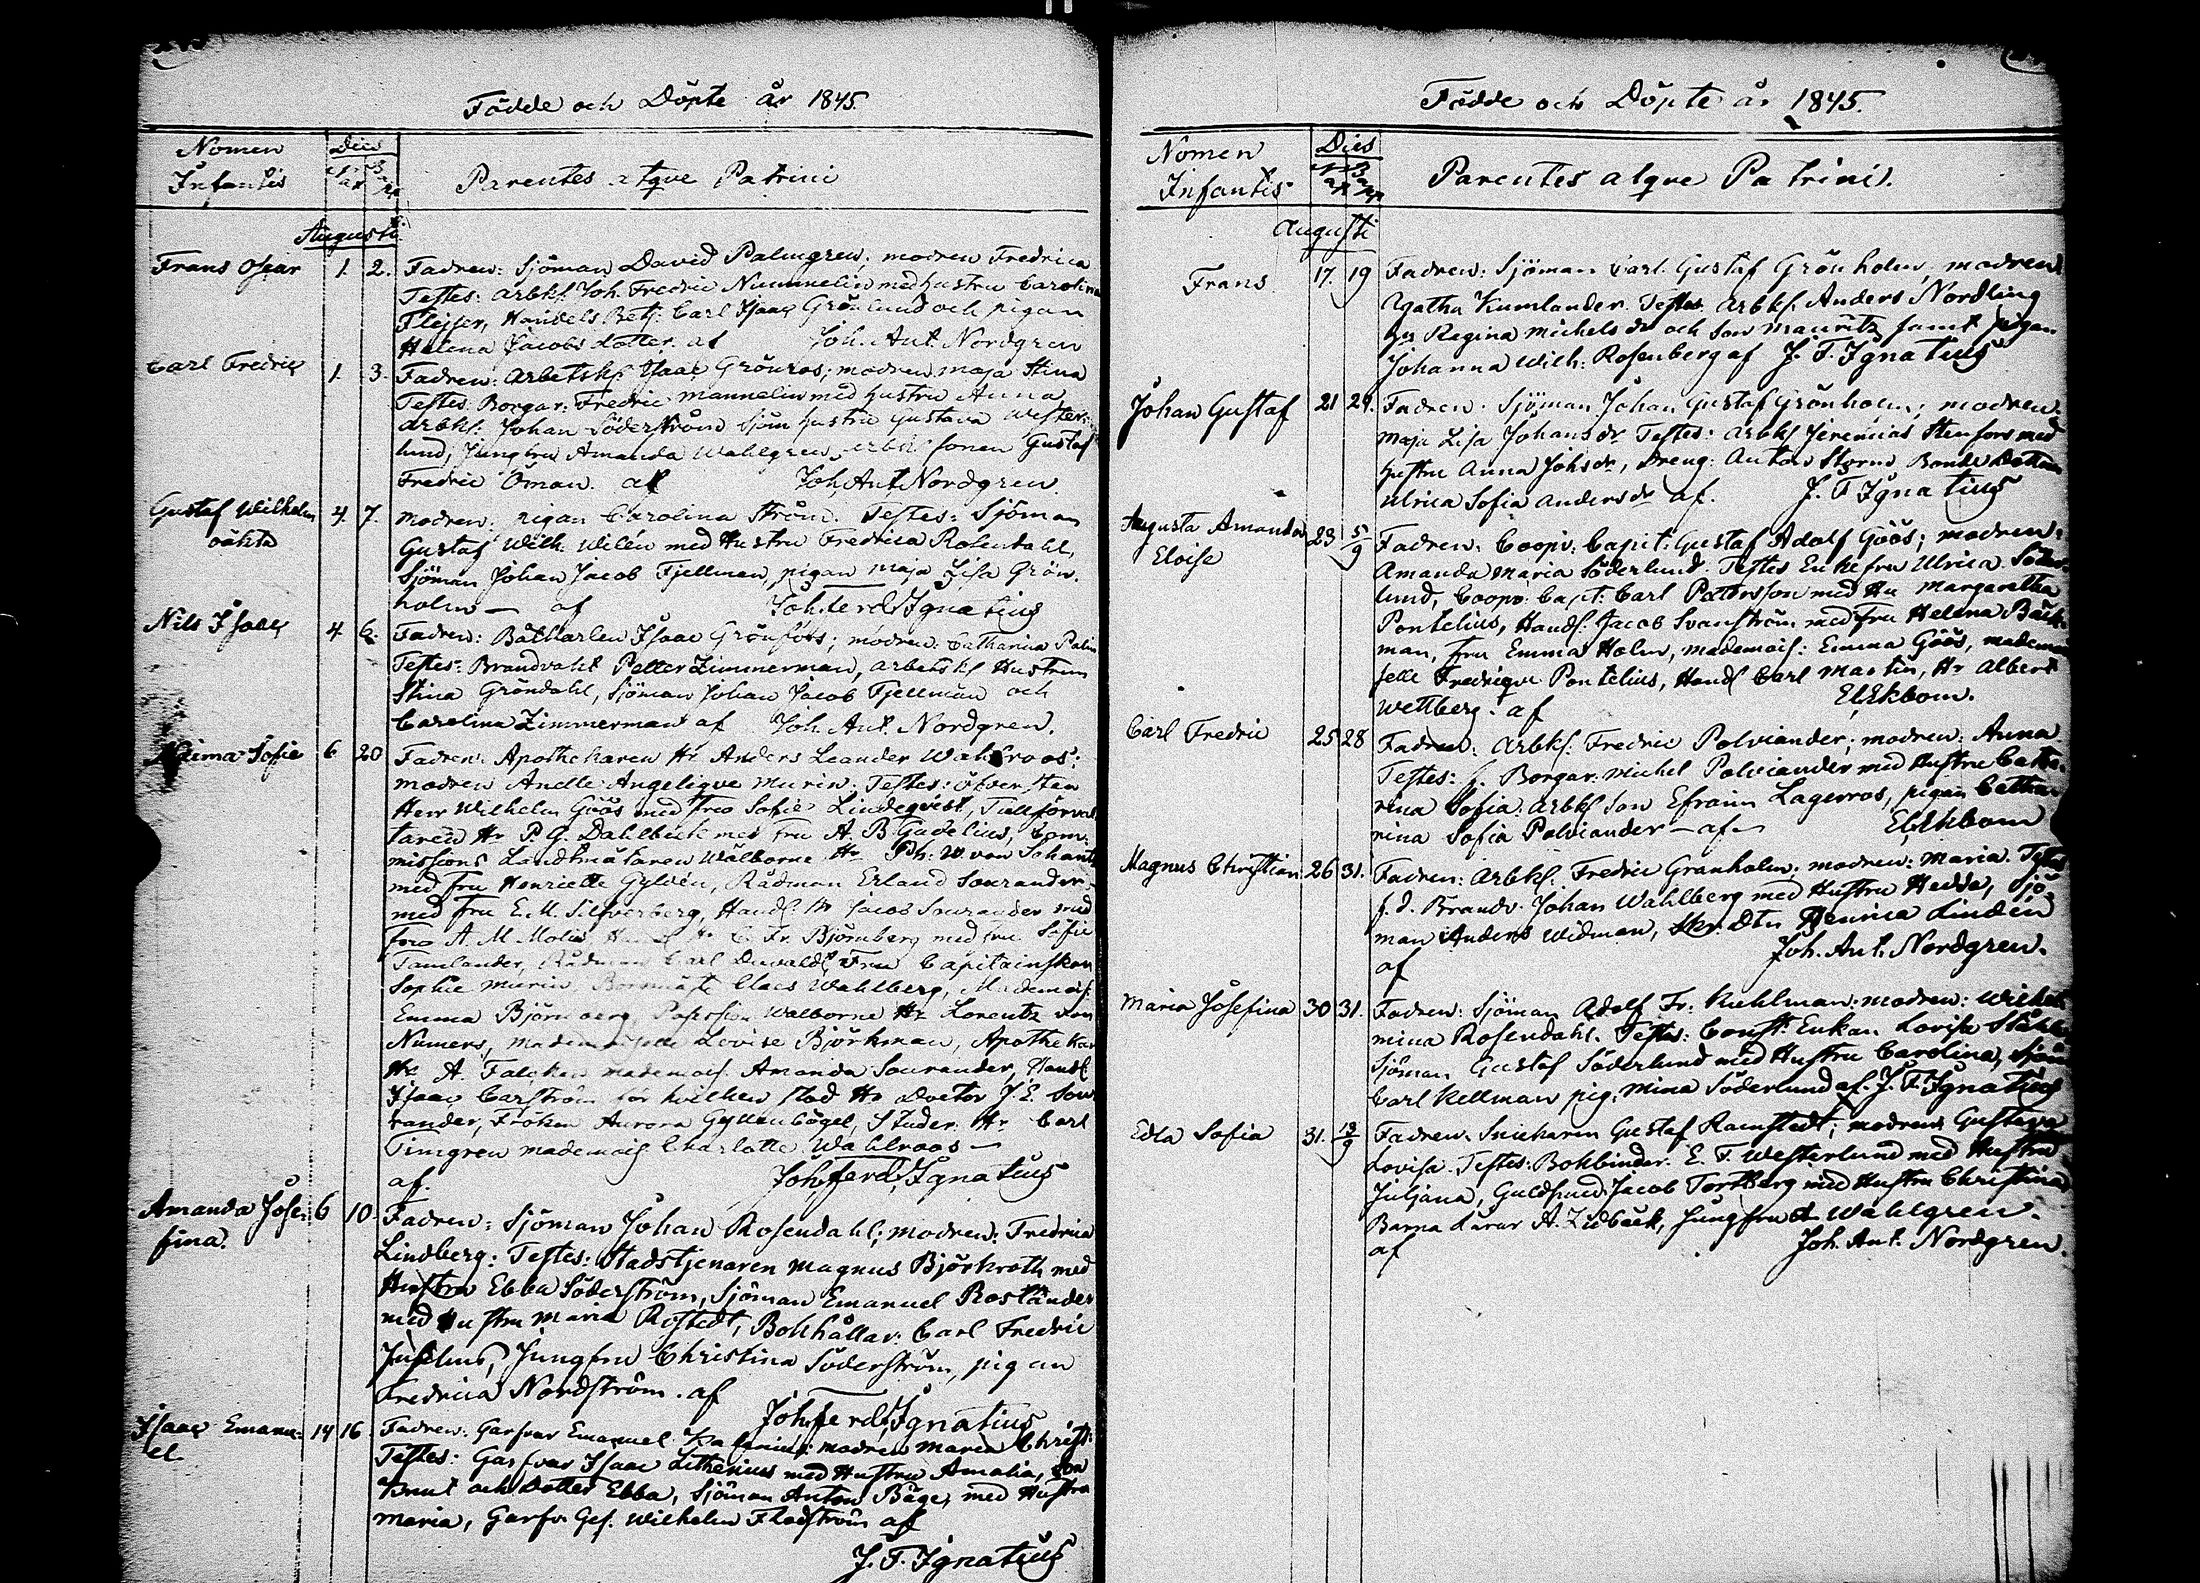 Födde och Döpte år 1845
Nomen
Infantis
Dies
Parentes atqve Patrini
Augusti
Frans Oscar 1. 2. Fadren: Sjöman David Palmgren; modren Fredrica
Testes: Arbksl. Joh. Fredric Nummelin med hustru Carolina
Handels Betj: Carl Isaac Grönlund och pigan
Helena Jacobs dotter. af Joh. Ant. Nordgren
Carl Fredric 1. 3. Fadren: Arbetskl Isaac Grönros; modren maja Stina
Testes Borgar: Fredric Mannelin med hustru Anna
Arbksl: Johan Söderström Sjöm hustru Gustava Wester-
lund, Jungfru Amanda Wahlgren, sonen Gustaf
Fredric Öman. af Joh. Ant. Nordgren.
Gustaf Wilhelm 4. 7. modren: pigan Carolina Ström. Testes: Sjöman
oäkta Gustaf Wilh. Wilén med Hustru Fredrica Rosendahl,
Sjöman Johan Jacob Fjellman, pigan maja Lisa Grön-
holm — af Joh. Ferd. Ignatius
Nils Isaac 4 6. Fadren: Båtkarlen Isaac Grönfors; modren: Catharina Palin
Testes: Brandvakt Petter Zimmerman, arbetskl Hustrun
Stina Gröndahl, Sjöman Johan Jacob Fjellman och
Carolina Zimmerman af Joh. Ant. Nordgren.
Naima Sofie 6 20 Fadren: Apothekaren Hr Anders Leander Wahlroos;
modren Anette Angeliqve Murin; Testes: öfversten
Herr Wilhelm Göös med fru Sofie Lindeqvist, Tullförval-
taren Hr P. G. Dahlbeck med fru A. B. Gadelius, Com-
missions Landtmätaren Wälborne Hr Ph: W. von Schantz
med fru Henriette Gyldén, Rådman Erland Sourander
med fru E. M. Silfverberg, Handl. Hr Jacob Sourander med
fru A. M. Molis Hr C. Fr. Björnberg med fru Sofie
Tamlander, Rådman Carl fru Capitainskan
Sophie Murin, Borgmäst Claes Wahlberg, Mademois:
Emma Björnberg, Wälborne Hr Lorentz von
Numers, mademoiselle Lovise Björkman, Apothekar
Hr A. Falcken mademois: Amanda Sourander, Handl
Isaac Carström för hvilken stod Hr Doctor J. E. Sou-
rander, Fröken Aurora Gyllenbögel, Studer. Hr Carl
Timgren mademois Charlotte Wahlroos —
af. Joh. Ferd. Ignatius
Amanda Jose- 6 10 Fadren: Sjöman Johan Rosendahl; modren: Fredrica
fina. Lindberg: Testes: Stadstjenaren Magnus Björkroth med
Hustru Ebba Söderström, Sjöman Emanuel Roslander
med Hustru Maria Rostedt, Bokhållar: Carl Fredric
Juselius, Jungfru Christina Söderström, pigan
Fredrica Nordström. af Joh. Ferd. Ignatius
Isaac Emanu- 14 16 Fadren: Garfvar Emanuel modren Maria Christ:
el. Testes: Garfvar Isaac Lithenius med Hustru Amalia, son
Knut och Dotter Ebba, Sjöman Anton Båge, med Hustru
Maria, Garfv. Ges. Wilhelm Flodström af
J. F. Ignatius
Födde och Döpte år 1845.
Nomen
Infantis
Dies
Parentes atqve Patrini.
Augusti
Frans 17. 19 Fadren: Sjöman Carl Gustaf Grönholm, modren
Agatha Kumlander. Testes Arbksl. Anders Nordling
hu Regina Michels dr och son Mauritz samt pigan
Johanna Wilh: Rosenberg af J. F. Ignatius
Johan Gustaf 21 29. Fadren: Sjöman Johan Gustaf Grönholm; modren:
Maja Lisa Johans dr. Testes: Arbksl Jeremias Stenfors med
hustru Anna Johs dr, Dreng: Anton Storm Bonde Dottren
Ulrica Sofia Anders dr af. J. F. Ignatius
Augusta Amanda 23 5/9 Fadren: Coopv: Capit: Gustaf Adolf Göös; modren:
Eloise Amanda Maria Söderlund. Testes Enkefru Ulrica Söder-
lund, Coopv. Capt: Carl Pettersson med Hu Margaretha
Pontelius, Handl. Jacob Svanström med fru Helena Bäck-
man, fru Emma Holm, mademois: Emma Göös, mademoi-
selle Fredriqve Pontelius, Handl Carl Martin, Hr Albert
Wettberg. af El. Ekbom.
Carl Fredric 25 28 Fadren: Arbksl. Fredric Polviander; modren: Anna
Testes: f. Borgar. Michel Polviander med Hustru Catha-
rina Sofia. Arbksl son Efraim Lagerros, pigan Catha-
rina Sofia Polviander — af — El. Ekbom
Magnus Christian 26 31. Fadren: Arbksl: Fredric Granholm; modren: Maria. Testes
f.d. Brandv. Johan Wahlberg med Hustru Hedda, Sjö-
man Anders Widman, Skr. Dtn Henrica Lindén
af Joh. Ant. Nordgren.
Maria Josefina 30 31. Fadren: Sjöman Adolf Fr: Kuhlman; modren: Wilhel-
mina Rosendahl. Testes: Const: Enkan Lovisa Ståhl
Sjöman Gustaf Söderlund med Hustru Carolina, Sjöm
Carl Kellman pig. Mina Söderlund af. J. F. Ignatius
Edla Sofia 31. 13/9 Fadren: Snickaren Gustaf Ramstedt; modren: Gustava
Lovisa. Testes: Bokbinder. E. F. Westerlund med Hustru
Juliana, Guldsmed Jacob Tortberg med Hustru Christina
Barna Lärar A. Lidbäck, Jungfru A Wahlgren.
af Joh. Ant: Nordgren.